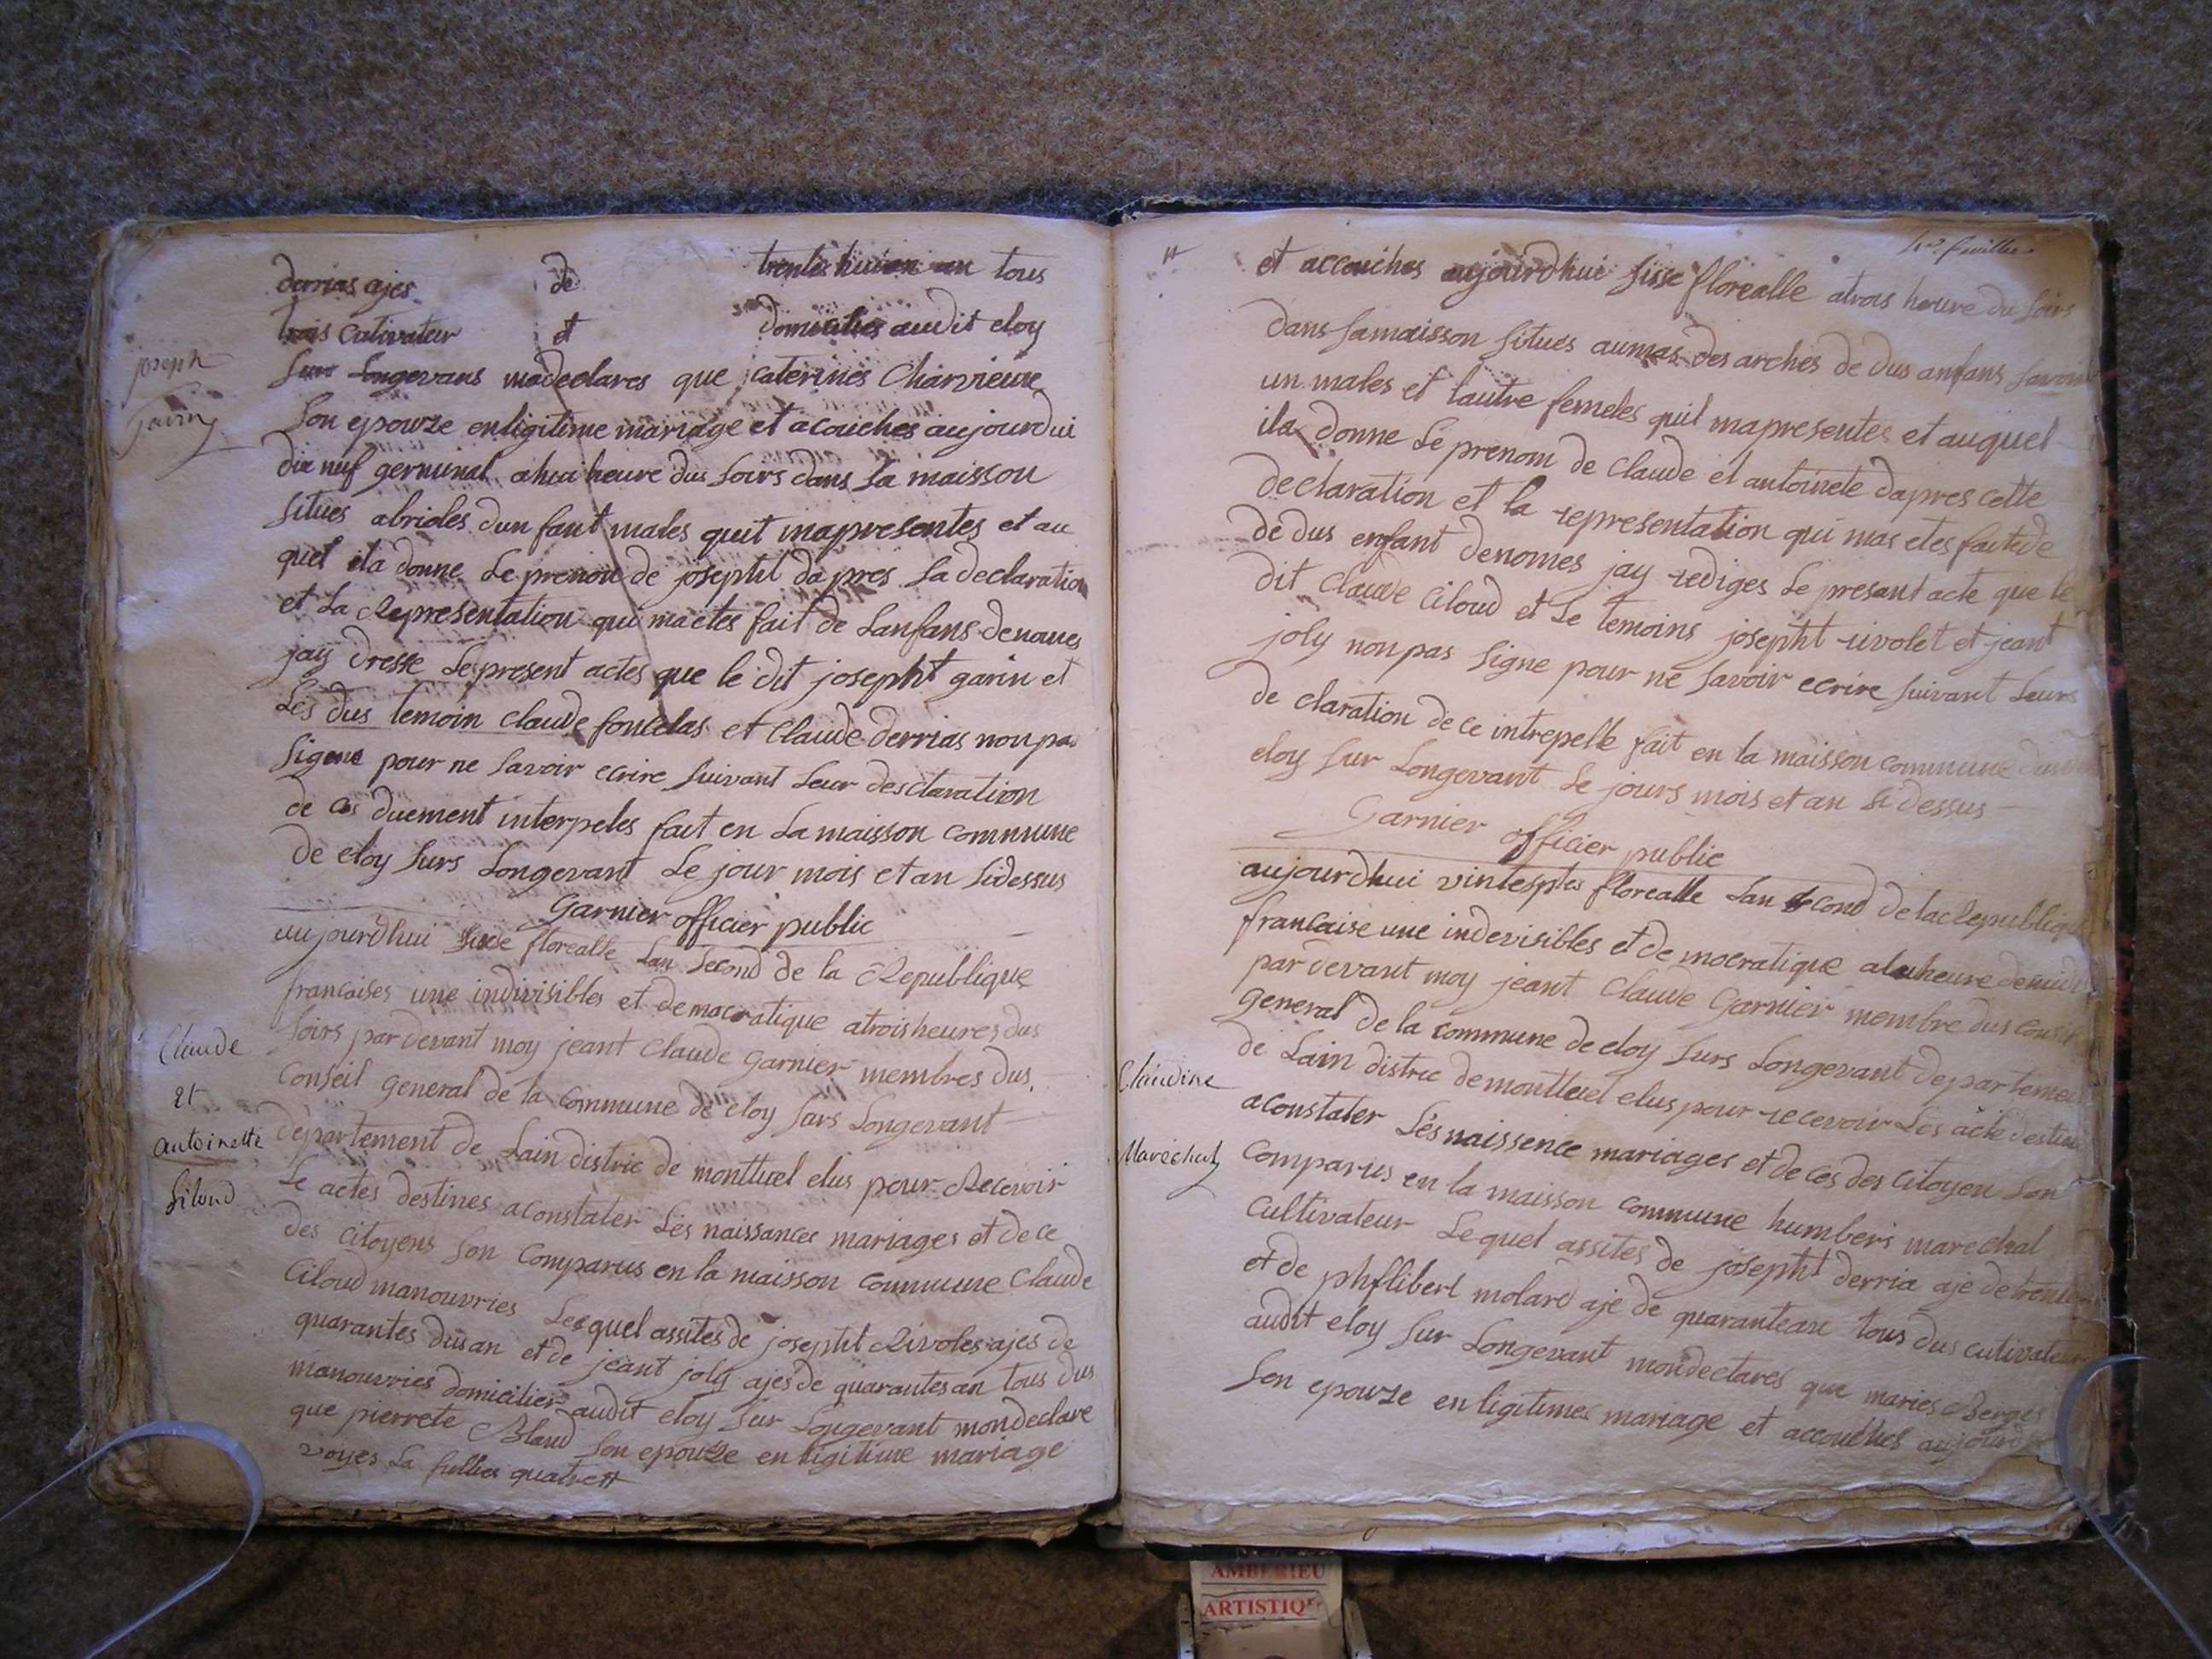 derrias ajes de trente hui an tous
trois cultivateur et domicilies audit eloy
joseph
garin
sur Longevans madeclares que caterines Charvieure
son epouze enligitime mariage et acouches aujourdui
dix nuf germinal ahui heure dus soirs dans sa maisson
situes abrioles dun fant males quil mapresentes et au
quel ila donne le prenon de josepht dapres la declaration
et la Representation qui maetes fait de lanfans denomes
jay dresse le present actes que le dit josepht garin et
Les dus temoin claude fouclas et Claude derrias non pas
signe pour ne savoir ecrire suivant leur desclaration
de ces duement interpeles fait en La maisson commune
de eloy surs Longevant Le jour mois et an sidessus
Garnier officier public
aujourdhui sixse florealle Lan second de la Republique
francaises une indivisibles et democratique atrois heures dus
soirs par devant moy jeant Claude Garnier membres dus
Conseil general de la Commune de eloy surs Longevant
departement de Lain distric de montluel elus pour Recevoir
Claude
et
antoinette
Siloud
Le actes destines aconstater Les naissances mariages et de ce
des citoyens son Comparus en la maisson Commune Claude
Ciloud manouvries Lesquel assites de josepht Rivoles ajes de
quarantes dus an et de jeant joly ajes de quarantes an tous dus
manouvries domicilier audit eloy sur Longevant mondeclare
que pierrete Bland son epouze en ligitime mariage
voyes La fullies quatre #
# et accouches aujourdhui sisse florealle atrois heure du soirs
dans samaisson situes aumas des arches de dus anfans savoir
un males et lautre femeles quil mapresentes et auquel
ila donne le prenom de Claude et antoinete dapres cette
declaration et la representation qui mas etes faite de
de dus enfant denomes jay rediges Le presant acte que le
dit Claude Ciloud et Le temoins josepht rivolet et jeant
joly non pas signe pour ne savoir ecrire suivant Leurs
de claration de ce intrepelle fait en la maisson commune
eloy sur Longevant Le jours mois et an si dessus
Garnier officier public
aujourdhui vinteptes florealle Lan second de la Republique
francaise une indevisibles et de mocratique heure de midi
par devant moy jeant Claude Garnier membre dus conseil
general de la commune de eloy surs Longevant departement
de Lain distric de montluel elus pour recevoir Les acte destines
Claudine
Marechal
aconstater Les naissence mariages et de ces des citoyen son
Comparus en la maisson commune humbers marechal
cultivateur Lequel assites de josepht derria aje de trente
et de phflibert molard aje de quarantean tous dus cultivateur
audit eloy sur Longevant mondeclares que maries Berges
son epouze en ligitimes mariage et accouches aujourdhui
AMBERIEU
ARTISTIQUE